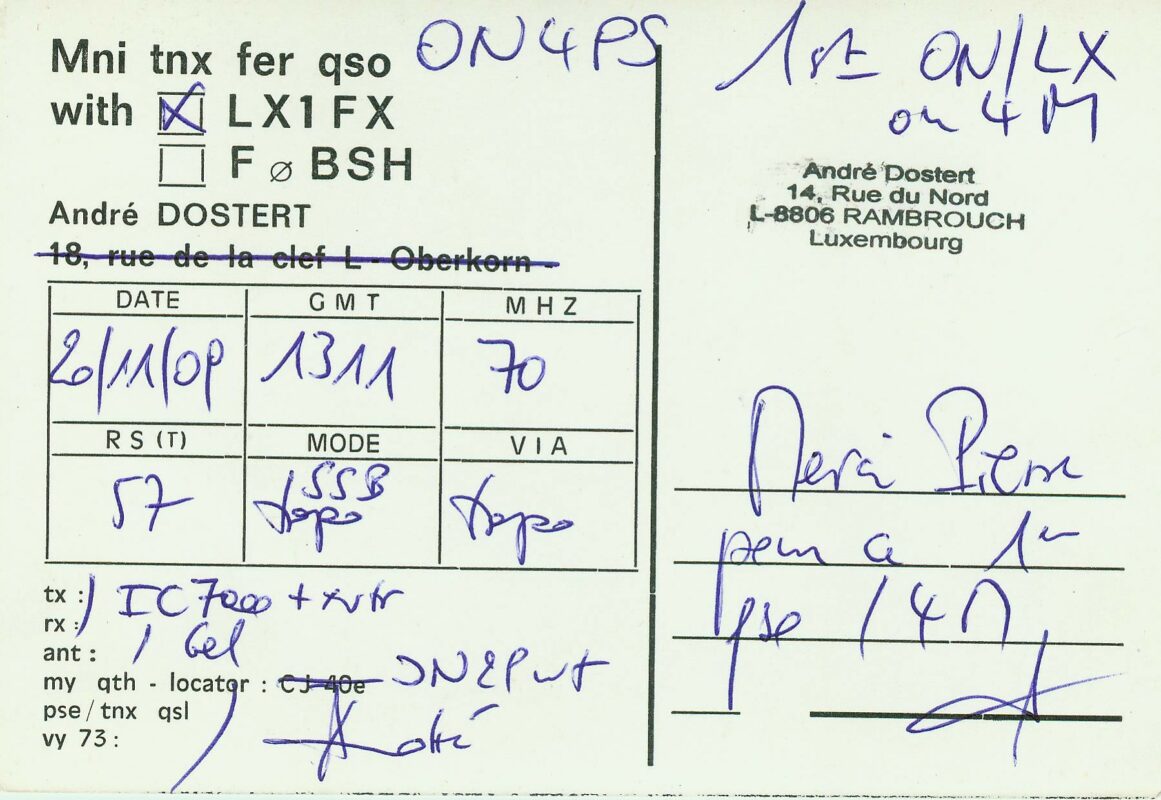 Mni tnx fer qso ON4PS
with X LX1FX
F ø BSH
André DOSTERT
18, rue de la clef L - Oberkorn -
DATE GMT MHZ
20/11/09 1311 70
RS (T) MODE VIA
57 SSB tropo tropo
tx : IC7000 + xvtr
rx :
ant : 6el
my qth - locator : CJ 40e JN29wt
pse/tnx qsl
vy 73 : André
1st ON/LX
on 4M
André Dostert
14, Rue du Nord
L-8806 RAMBROUCH
Luxembourg
Merci Pierre
pour ce 1er
qso / 4M